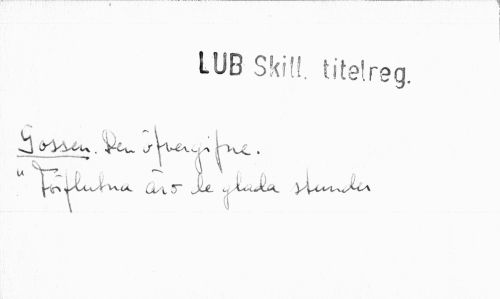 LUB Skill. titelreg.
Gossen. Den öfvergifne.
" Förflutna äro de glada stunder